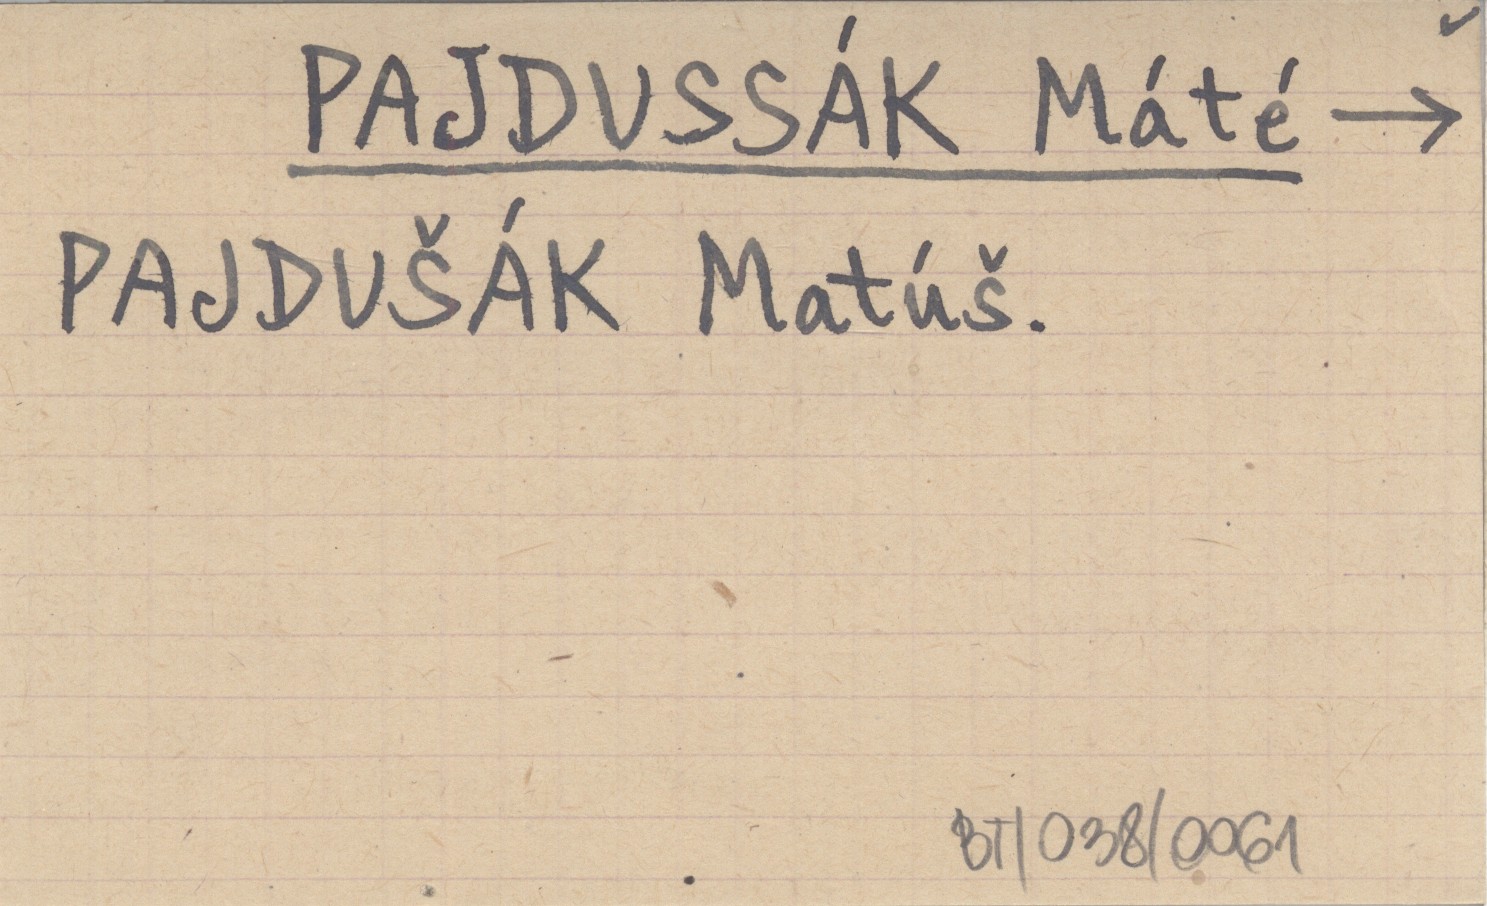 PAJDUSSÁK Máté →
PAJDUŠÁK Matúš.
BT/038/0061